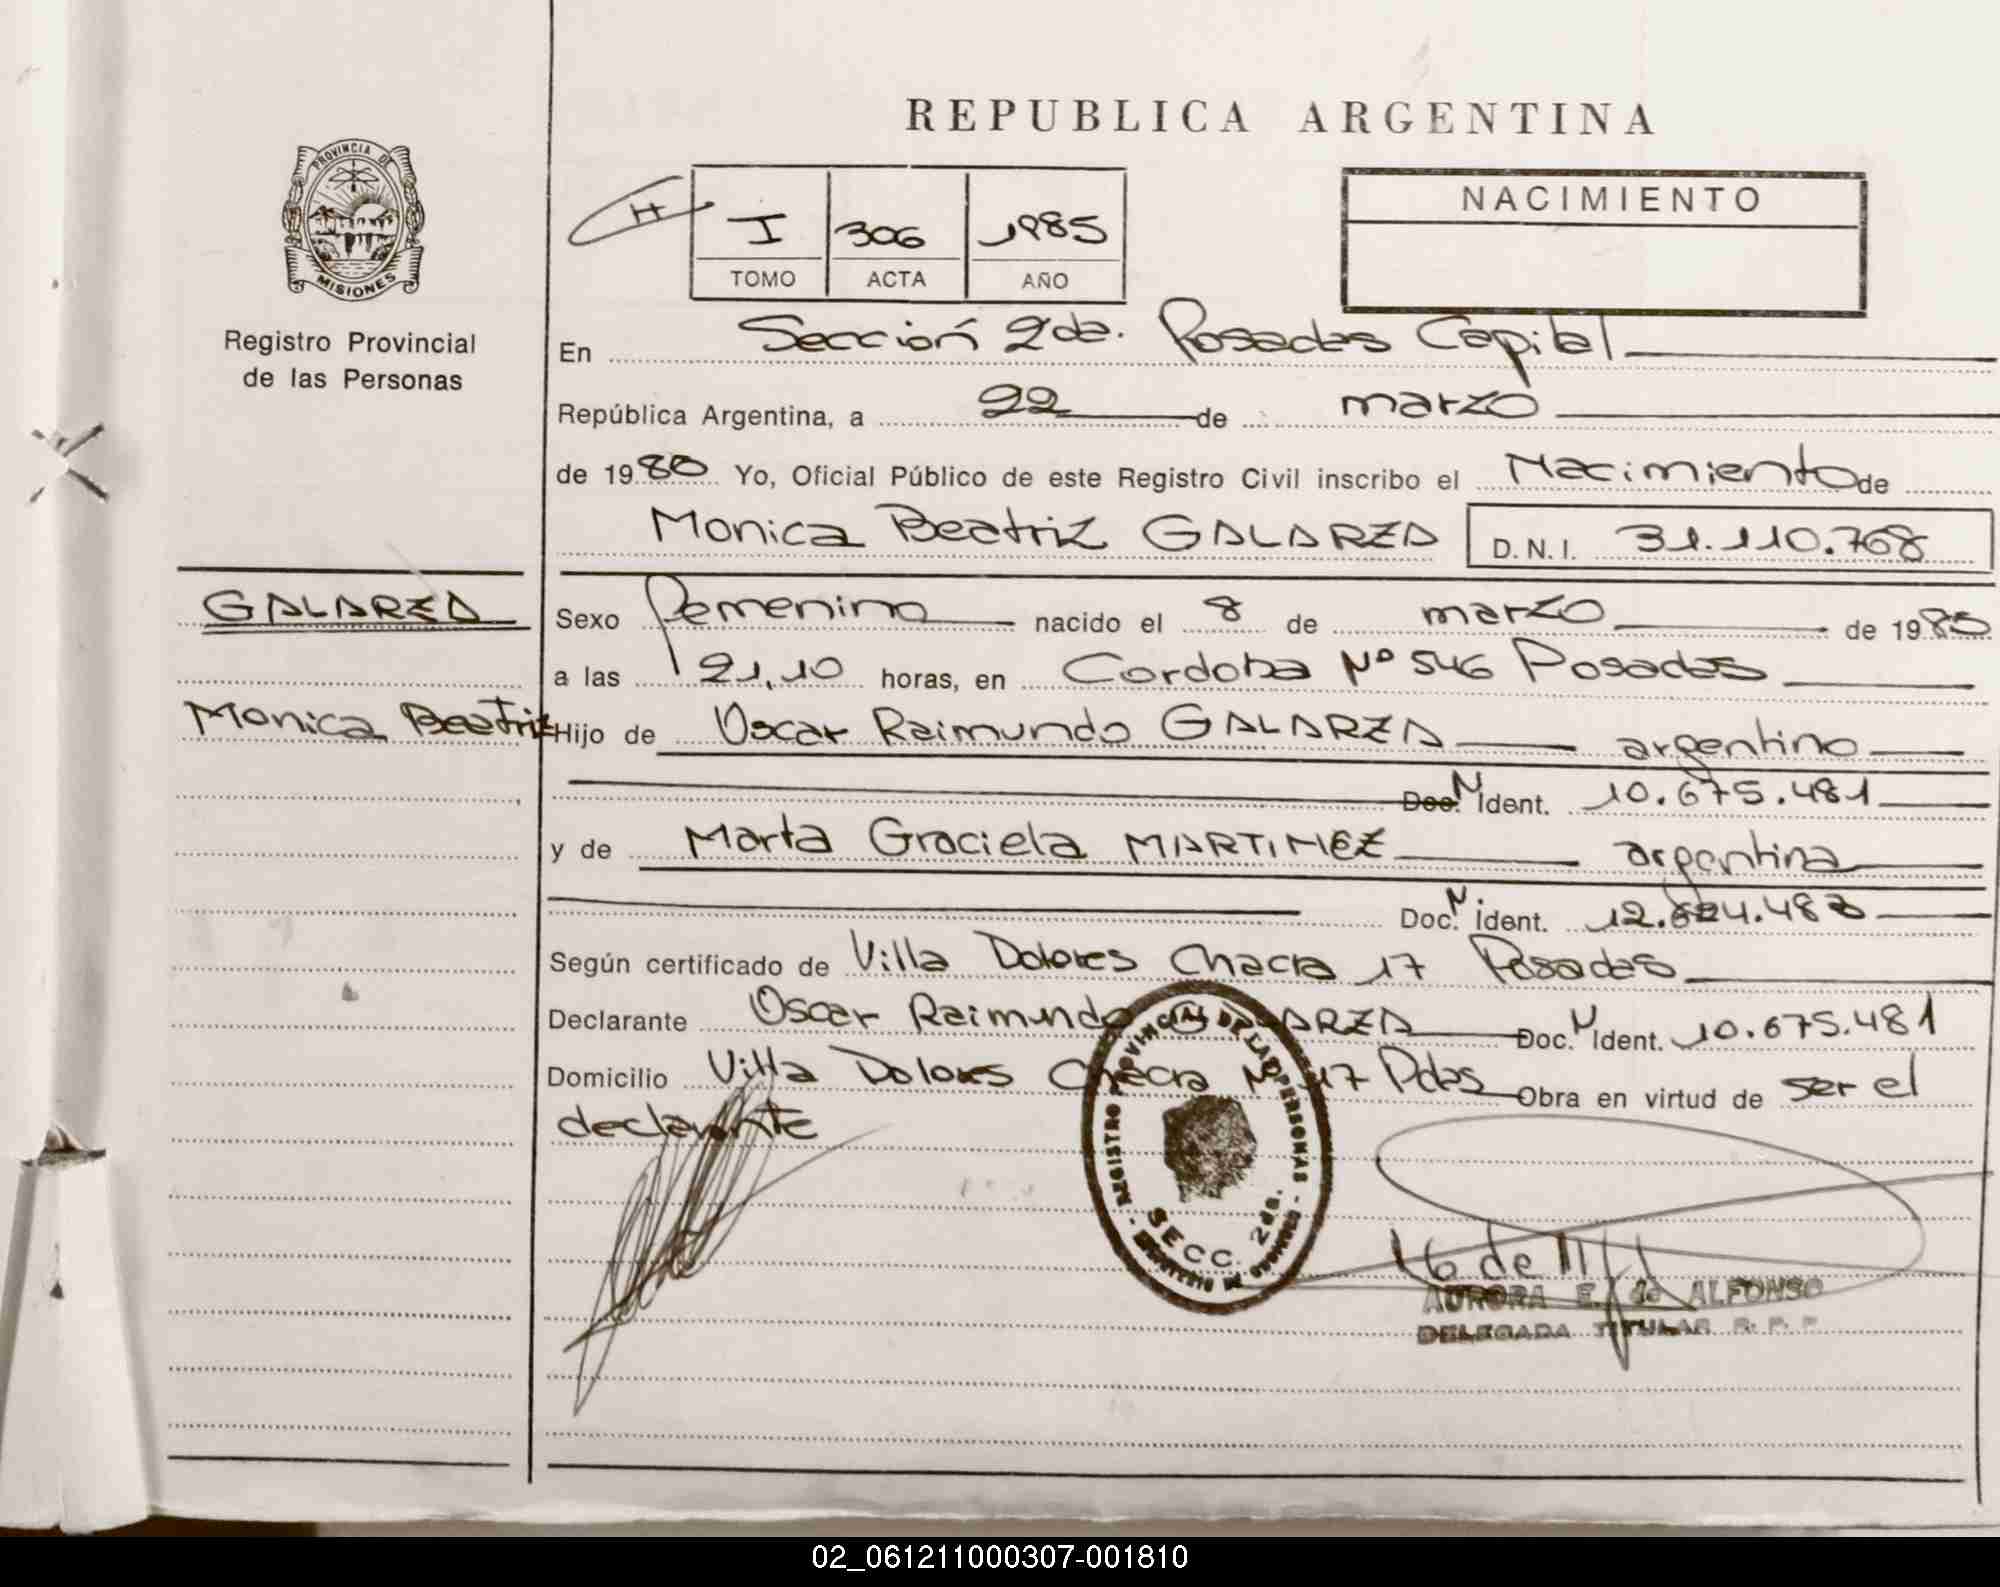 REPUBLICA ARGENTINA
PROVINCIA DE MISIONES
Registro Provincial
de las Personas
H
I 306 1985
TOMO ACTA AÑO
NACIMIENTO
En Sección 2da. Posadas Capital
República Argentina, a 22 de marzo
de 1980 Yo, Oficial Público de este Registro Civil inscribo el Nacimiento de
Monica Beatriz GALARZA D.N.I. 31.110.768
GALARZA
Monica Beatriz
Sexo femenino nacido el 8 de marzo de 1985
a las 21,10 horas, en Cordoba Nº 546 Posadas
Hijo de Oscar Raimundo GALARZA argentino
Doc. N Ident. 10.675.481
y de Marta Graciela MARTINEZ argentina
Doc. N Ident.
Según certificado de Villa Dolores Chacra 17 Posadas
Declarante Oscar Raimundo GALARZA Doc. N Ident. 10.675.481
Domicilio Villa Dolores Chacra Nº 17 Pdas Obra en virtud de ser el
declarante
REGISTRO PROVINCIAL DE LAS PERSONAS
SECC. 2da.
AURORA E. de ALFONSO
DELEGADA TITULAR R. P. P.
02_061211000307-001810